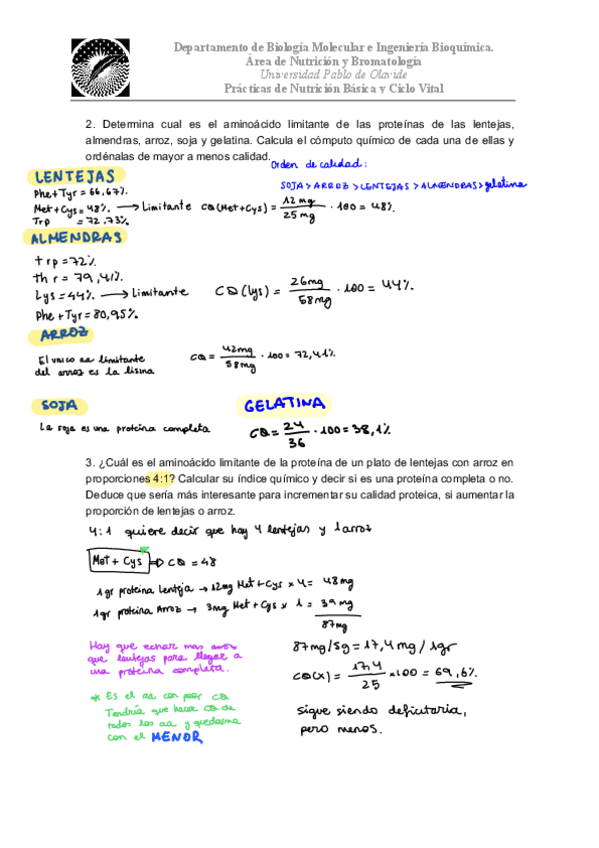 Departamento de Biología Molecular e Ingeniería Bioquímica.
Área de Nutrición y Bromatología
Universidad Pablo de Olavide
Prácticas de Nutrición Básica y Ciclo Vital
2. Determina cual es el aminoácido limitante de las proteínas de las lentejas,
almendras, arroz, soja y gelatina. Calcula el cómputo químico de cada una de ellas y
ordénalas de mayor a menos calidad.
Orden de calidad:
LENTEJAS
SOJA > ARROZ > LENTEJAS > ALMENDRAS > gelatina
Phe+Tyr = 66,67%
Met+Cys = 48% → Limitante CQ (Met+Cys) = 12 mg / 25 mg · 100 = 48%.
Trp = 72.73%
ALMENDRAS
trp = 72%
thr = 79,41%.
Lys = 44% → Limitante CQ (lys) = 26mg / 58mg · 100 = 44%.
Phe + Tyr = 80,95%.
ARROZ
El unico aa limitante
del arroz es la lisina
CQ = 42mg / 58mg · 100 = 72,41%
SOJA
GELATINA
La soja es una proteína completa
CQ = 24 / 36 · 100 = 38,1%
3. ¿Cuál es el aminoácido limitante de la proteína de un plato de lentejas con arroz en
proporciones 4:1? Calcular su índice químico y decir si es una proteína completa o no.
Deduce que sería más interesante para incrementar su calidad proteica, si aumentar la
proporción de lentejas o arroz.
4:1 quiere decir que hay 4 lentejas y 1 arroz
Met + Cys * ⇒ CQ = 48
1gr proteina Lenteja → 12mg Met + Cys x 4 = 48 mg
1gr proteina Arroz → 3mg Met + Cys x 1 = 39 mg
87mg
Hay que echar mas arroz
que lentejas para llegar a
una proteina completa.
87mg/5g = 17,4 mg / 1gr
CQ(x) = 17,4 / 25 x100 = 69,6%
* Es el aa con peor CQ
Tendría que hacer CQ de
todos los aa y quedarme
con el MENOR
sigue siendo deficitaria,
pero menos.